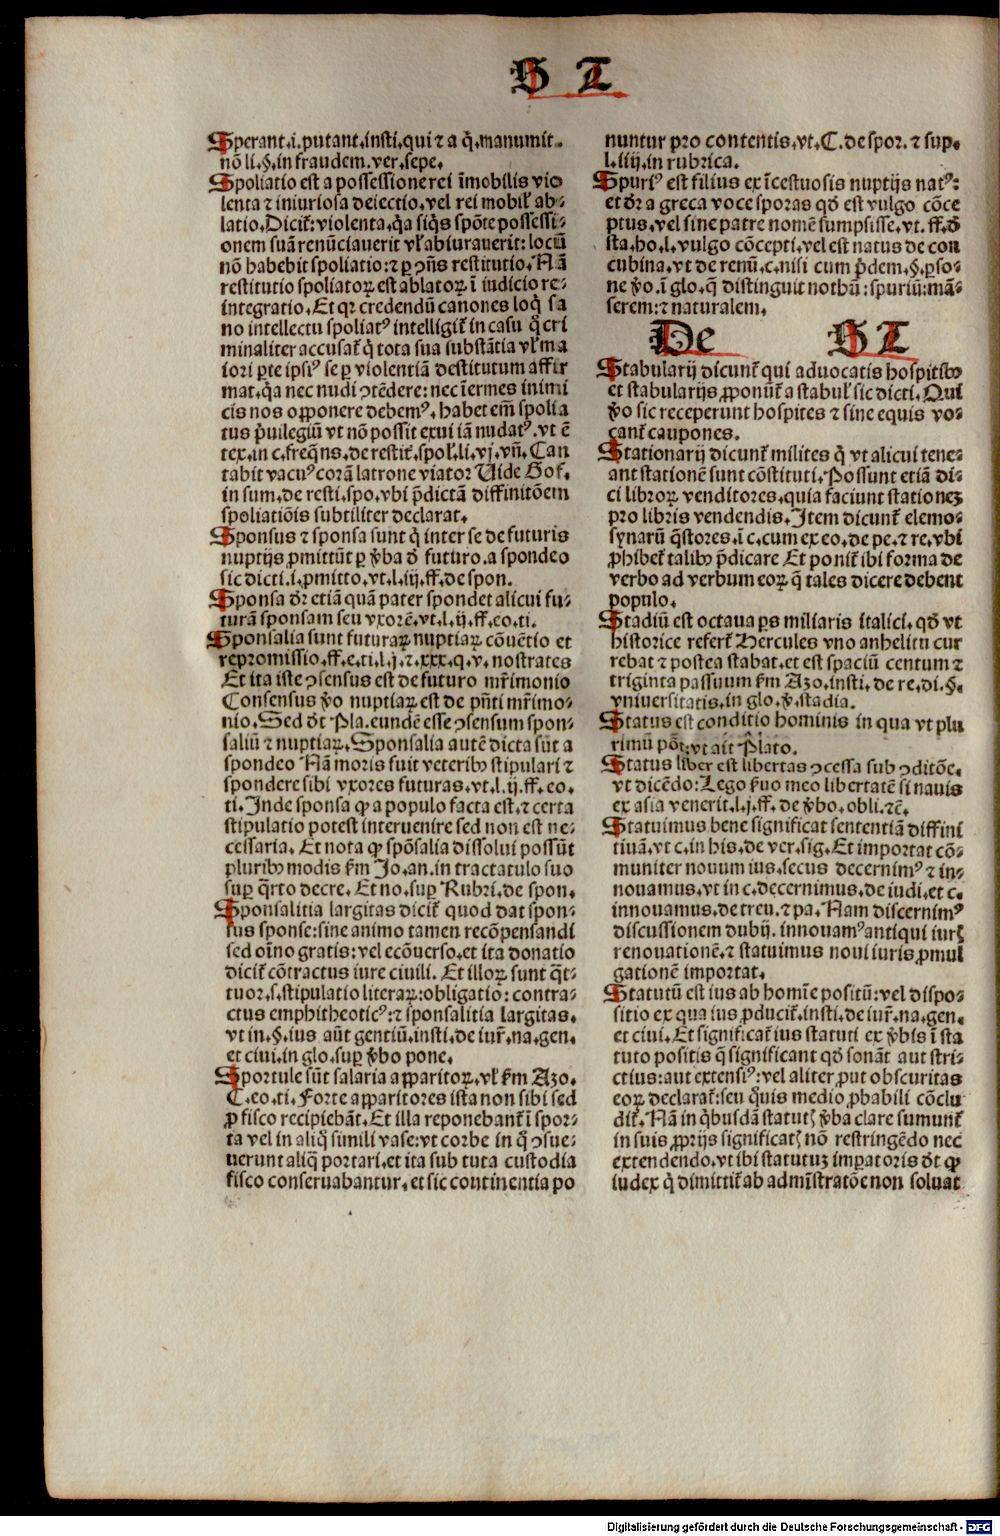 S T
Sperant.i.putant.insti.qui ⁊ a q̄.manumit.
nō li.§.in fraudem.ver.sepe.
Spoliatio est a possessione rei īmobilis vio
lenta ⁊ iniuriosa deiectio.vel rei mobil' ab-
latio.Dicit᷑: violenta.q̇a siq̇s spōte possessi-
onem suā renūciauerit vl' abiurauerit: locū
nō habebit spoliatio: ⁊ ꝑ ꝯn̄s restitutio.Nā
restitutio spoliatoꝝ est ablatoꝝ ī iudicio re-
integratio.Et qꝛ credendū canones loq̇ sa
no intellectu spoliatꝰ intelligit᷑ in casu q̇ cri
minaliter accusat᷑ q̇ tota sua substātia vl' ma
iori ꝑte ipsiꝰ se ꝑ violentiā destitutum affir
mat.q̇a nec nudi ꝯtēdere: nec īermes inimi
cis nos opponere debemꝰ.habet em̄ spolia
tus p̄uilegiū vt nō possit exui iā nudatꝰ.vt ē
tex.in c.freq̄ns.de restit᷑.spol'.li.vj.vn̄.Can
tabit vacuꝰ corā latrone viator Uide Gof.
in sum.de resti.spo.vbi p̄dictā diffinitōem
spoliatiōis subtiliter declarat.
Sponsus ⁊ sponsa sunt q̇ inter se de futuris
nuptijs ꝓmittūt ꝑ v̄ba d̄ futuro.a spondeo
sic dicti.i.ꝓmitto.vt.l.iij.ff.de spon.
Sponsa dr̄ etiā quā pater spondet alicui fu-
turā sponsam seu vxorē.vt.l.ij.ff.eo.ti.
Sponsalia sunt futuraꝝ nuptiaꝝ cōuētio et
repromissio.ff.e.ti.l.j.⁊.xxx.q.v.nostrates
Et ita iste ꝯsensus est de futuro mr̄imonio
Consensus v̄o nuptiaꝝ est de pn̄ti mr̄imo-
nio.Sed dt̄ Pla.eundē esse ꝯsensum spon-
saliū ⁊ nuptiaꝝ.Sponsalia autē dicta sūt a
spondeo Nā moris fuit veteribꝰ stipulari ⁊
spondere sibi vxores futuras.vt.l.ij.ff.eo.
ti.Inde sponsa ꝙ a populo facta est.⁊ certa
stipulatio potest interuenire sed non est ne-
cessaria.Et nota ꝙ spōsalia dissolui possūt
pluribꝰ modis ẜm Jo.an.in tractatulo suo
suꝑ q̇rto decre.Et no.suꝑ Rubri.de spon.
Sponsalitia largitas dicit᷑ quod dat spon-
sus sponse: sine animo tamen recōpensandi
sed oīno gratis: vel ecōuerso.et ita donatio
dicit᷑ cōtractus iure ciuili. Et illoꝝ sunt q̄t-
tuor.s.stipulatio literaꝝ: obligatio: contra-
ctus emphitheoticꝰ: ⁊ sponsalitia largitas.
vt in.§.ius aūt gentiū.insti.de iur̄.na.gen.
et ciui.in glo.suꝑ v̄bo pone.
Sportule sūt salaria apparitoꝝ.vl' ẜm Azo.
C.eo.ti.Forte apparitores ista non sibi sed
ꝓ fisco recipiebāt.Et illa reponebant᷑ ī spor-
ta vel in aliq̇ simili vase: vt corbe in q̇ ꝯsue-
uerunt aliq̇ portari.et ita sub tuta custodia
fisco conseruabantur.et sic continentia po
nuntur pro contentis.vt.C.de spor.⁊ sup.
l.iiij.in rubrica.
Spuriꝰ est filius ex īcestuosis nuptijs natꝰ:
et dr̄ a greca voce sporas qd̄ est vulgo cōce
ptus.vel sine patre nomē sumpsisse.vt.ff.d̄
sta.ho.l.vulgo cōcepti.vel est natus de con
cubina.vt de renū.c.nisi cum p̄dem.§.ꝑso-
ne v̄o.ī glo.q̄ distinguit nothū: spuriū: mā-
serem: ⁊ naturalem.
De S T
Stabularij dicunt᷑ qui aduocatis hospitibꝰ
et stabularijs ꝓponūt᷑ a stabul' sic dicti.Qui
v̄o sic receperunt hospites ⁊ sine equis vo-
cant᷑ caupones.
Stationarij dicunt᷑ milites q̇ vt alicui tene-
ant stationē sunt cōstituti.Possunt etiā di-
ci libroꝝ venditores.quia faciunt stationeꝫ
pro libris vendendis.Item dicunt᷑ elemo-
synarū q̄stores.ī c.cum ex eo.de pe.⁊ re.vbi
ꝓhibet᷑ talibꝰ p̄dicare Et ponit᷑ ibi forma de
verbo ad verbum eoꝝ q̄ tales dicere debent
populo.
Stadiū est octaua ꝑs miliaris italici.qd̄ vt
historice refert᷑ Hercules vno anhelitu cur
rebat ⁊ postea stabat.et est spaciū centum ⁊
triginta passuum ẜm Azo.insti.de re.di.§.
vniuersitatis.in glo.v̄.stadia.
Status est conditio hominis in qua vt plu
rimū pōt.vt ait Plato.
Status liber est libertas ꝯcessa sub ꝯditōe.
vt dicēdo: Lego ẜuo meo libertatē si nauis
ex asia venerit.l.j.ff.de v̄bo.obli.⁊c̄.
Statuimus bene significat sententiā diffini
tiuā.vt c.in his.de ver.sig.Et importat cō-
muniter nouum ius.secus decernimꝰ ⁊ in-
nouamus.vt in c.decernimus.de iudi.et c.
innouamus.de treu.⁊ pa.Nam discernimꝰ
discussionem dubij. innouamꝰ antiqui iurꝭ
renouationē.⁊ statuimus noui iuris ꝓmul
gationē importat.
Statutū est ius ab homīe positū: vel dispo-
sitio ex qua ius ꝓducit᷑.insti.de iur̄.na.gen.
et ciui.Et significat᷑ ius statuti ex v̄bis ī sta
tuto positis q̄ significant qd̄ sonāt aut stri-
ctius: aut extensiꝰ: vel aliter ꝓut obscuritas
eoꝝ declarat᷑: seu q̇uis medio ꝓbabili cōclu
dit᷑.Nā in q̇busdā statutꝭ v̄ba clare sumunt᷑
in suis ꝓprijs significatꝭ nō restringēdo nec
extendendo.vt ibi statutuꝫ imꝑatoris dt̄ ꝙ
iudex q̇ dimittit᷑ ab adm̄istratōe non soluat
Digitalisierung gefördert durch die Deutsche Forschungsgemeinschaft - DFG